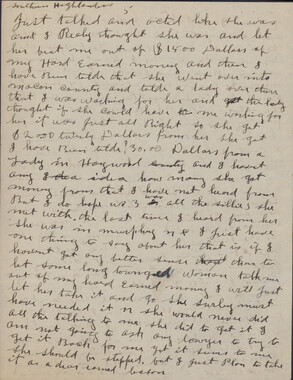 Southern Highlander
Just talked and acted like she was
and I Realy thought she was and let
her beat me out of $15.00 Dollars of
my Hard Earned money and then I
have Bin told that she went over into
macon county and told a lady over there
that I was waiting for her and the lady
thought if she could have me working for
her it was just all Right so she got
$20.00 twenty Dollars from her she got
I have Bin told 30.00 Dollars from a
lady in Haywood county and I havent
any idea how many she got
money from that I have not heard from
But I do hope we 3 is all the sillies she
met with, the last time I heard from her
she was in murphey n c I just have
one thing to say about her that is if I
havent got any better sense than to
let some long tounged woman talk me
out of my hard Earned money I will just
let her take it and go she surley must
have needed it or she would never did
all the talking to me, she did to get it I
am not going to ask any lawyer to try to
get it Back for me yet it seems to me
she should be stopped, but I just Plan to take
it as a dear earned lesson